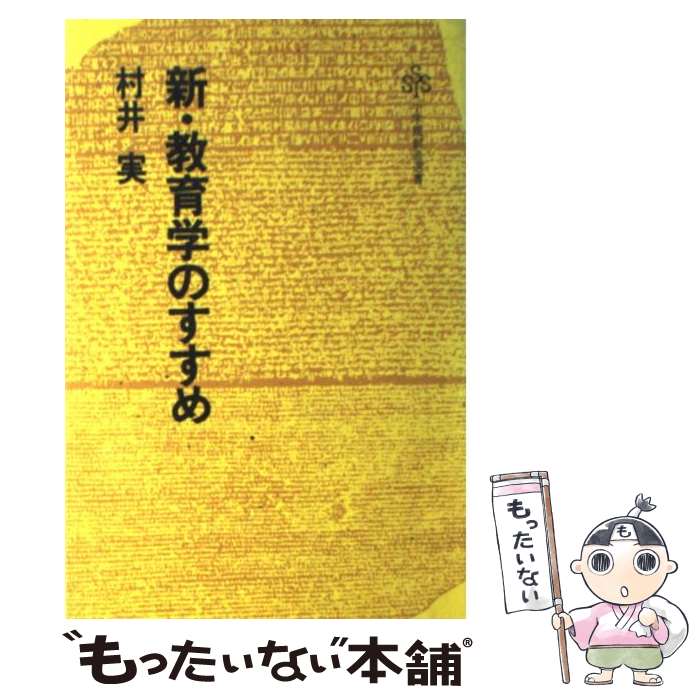 新・教育学のすすめ
村井 実
SSS
小学館創造選書
もったいない
も
"もったいない"本舗®